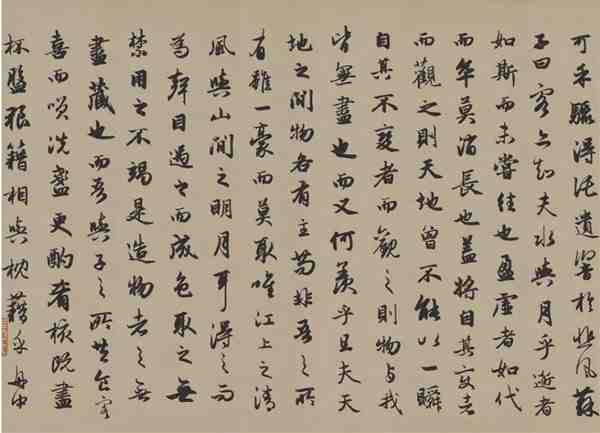 可乎驟得託遺響於悲風蘇
子曰客亦知夫水與月乎逝者
如斯而未嘗往也盈虛者如代
而卒莫消長也蓋將自其變者
而觀之則天地曾不能以一瞬
自其不變者而觀之則物与我
皆無盡也而又何羨乎且夫天
地之間物各有主苟非吾之所
有雖一豪而莫取唯江上之清
風與山間之明月耳得之而
為聲目遇之而成色取之無
禁用之不竭是造物者之無
盡藏也而吾與子之所共食客
喜而笑洗盞更酌肴核既盡
杯盤狼籍相與枕藉乎舟中